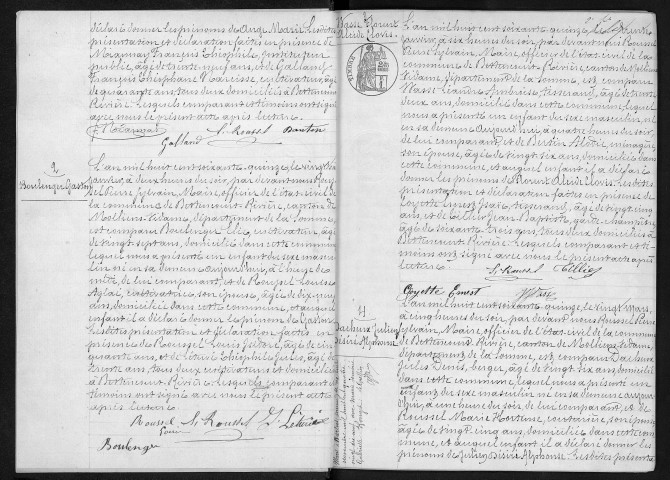 déclaré donner les prénoms de Ange Marie. Lesdites
présentation et déclaration faites en présence de
public, âgé de trente ans, et de Galland
François Théophane Narcisse, cultivateur, âgé
de quarante ans, tous deux domiciliés à Bettencourt
Rivière. Lesquels comparant et témoins ont signé
avec nous le présent acte après lecture.
Galland S. Roussel
2
Boulenger Gaston
L'an mil huit cent soixante quinze, le vingt
janvier, à deux heures du soir, par devant nous Rous-
sel Pierre Sylvain, Maire, officier de l'état-civil de
la commune de Bettencourt-Rivière, canton de
Molliens-Vidame, département de la Somme,
est comparu Boulenger cultivateur, âgé
de vingt sept ans, domicilié dans cette commune,
lequel nous a présenté un enfant du sexe mascu-
lin né en sa demeure aujourd'hui, à l'heure de
de lui comparant, et de Roussel Louise
son épouse, âgée de dix-neuf
ans, domiciliée dans cette commune, et auquel
enfant il a déclaré donner le prénom de Gaston
Lesdites présentation et déclaration faites en
présence de Roussel Louis Isidore, âgé de cin-
quante ans, et de Théophile Jules, âgé de
trente ans, tous deux cultivateurs et domiciliés
à Bettencourt-Rivière. Lesquels comparant et
témoins ont signé avec nous le présent acte
après lecture.
Roussel S. Roussel
Louis
Boulenger
Vasse Florent
Alcide Clovis
L'an mil huit cent soixante quinze, le trente
janvier, à six heures du soir, par devant nous Roussel
Pierre Sylvain, Maire, officier de l'état civil de la
commune de Bettencourt-Rivière, canton de Molliens
Vidame, département de la Somme, est comparu
Vasse Léandre Ambroise, tisserand, âgé de trente
deux ans, domicilié dans cette commune, lequel
nous a présenté un enfant du sexe masculin, né
en sa demeure aujourd'hui, à quatre heures du soir,
de lui comparant, et de ménagère,
son épouse, âgée de vingt six ans, domiciliée dans
cette commune, et auquel enfant il a déclaré
donner les prénoms de Florent Alcide Clovis. Lesdites
présentation et déclaration faites en présence de
Goyette Ernest tisserand, âgé de vingt cinq
ans, et de Tellier Jean Baptiste, garde champêtre
âgé de soixante ans, tous deux domiciliés à
Bettencourt-Rivière. Lesquels comparant et té-
moins ont signé avec nous le présent acte après
lecture.
S. Roussel Tellier
Goyette Ernest Vasse
4
Dacheux Julien
Désiré Alphonse
L'an mil huit cent soixante quinze, le vingt mars,
à cinq heures du soir, par devant nous Roussel Pierre
Sylvain, Maire, officier de l'état civil de la commune
de Bettencourt-Rivière, canton de Molliens-Vidame,
département de la Somme, est comparu Dacheux
Jules Denis, berger, âgé de vingt six ans, domicilié
dans cette commune, lequel nous a présenté un
enfant du sexe masculin né en sa demeure aujour-
d'hui, à une heure du soir, de lui comparant, et de
Roussel Marie Hortense, couturière, son épouse,
âgée de vingt cinq ans, domiciliée dans cette com-
mune, et auquel enfant il a déclaré donner les
prénoms de Julien Désiré Alphonse. Lesdites présenta-